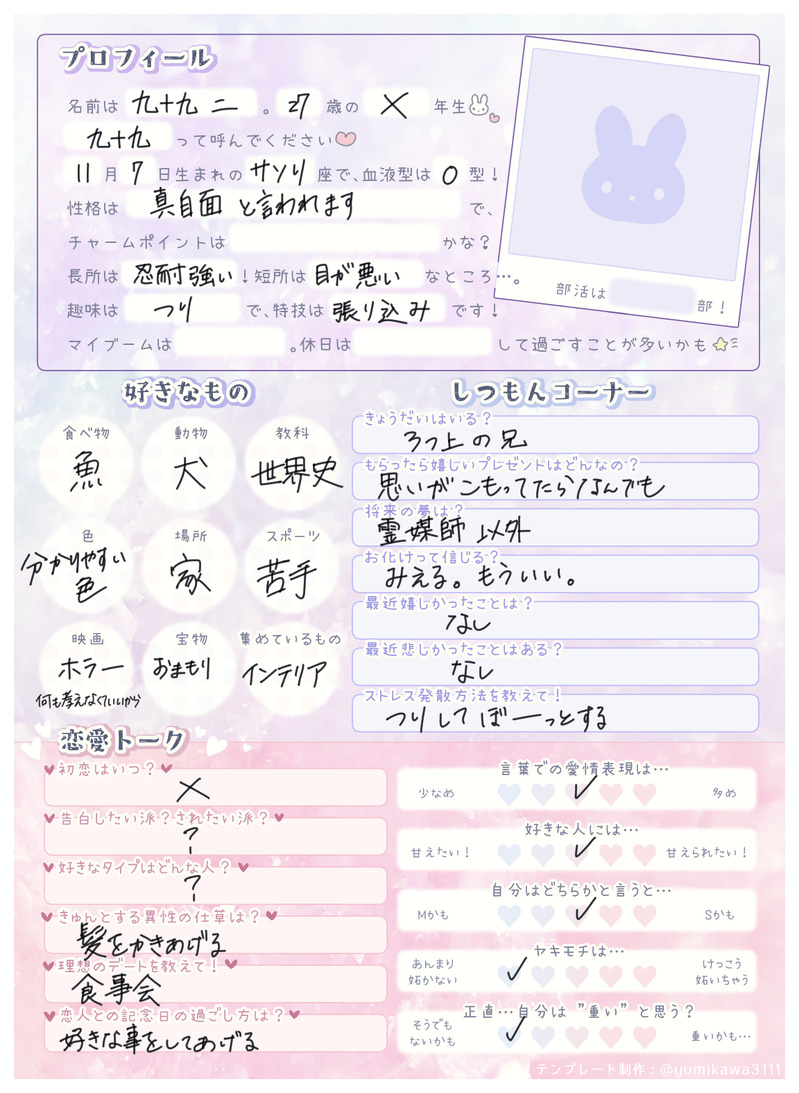 プロフィール
名前は 九十九 二 。27歳の × 年生
九十九 って呼んでください
11月7日生まれのサソリ座で、血液型はO型！
性格は 真自面 と言われます で、
チャームポイントは かな？
長所は 忍耐強い！短所は 目が悪い なところ…。
趣味は つり で、特技は 張り込み です！
マイブームは 。休日は して過ごすことが多いかも
部活は 部！
好きなもの
食べ物 動物 教科
魚 犬 世界史
色 場所 スポーツ
分かりやすい色 家 苦手
映画 宝物 集めているもの
ホラー おまもり インテリア
何も考えなくていいから
しつもんコーナー
きょうだいはいる？
3つ上の兄
もらったら嬉しいプレゼントはどんなの？
思いがこもってたらなんでも
将来の夢は？
霊媒師 以外
お化けって信じる？
みえる。もういい。
最近嬉しかったことは？
なし
最近悲しかったことはある？
なし
ストレス発散方法を教えて！
つりしてぼーっとする
恋愛トーク
初恋はいつ？
×
告白したい派？されたい派？
？
好きなタイプはどんな人？
？
きゅんとする異性の仕草は？
髪をかきあげる
理想のデートを教えて！
食事会
恋人との記念日の過ごし方は？
好きな事をしてあげる
言葉での愛情表現は…
少なめ ✓ 多め
好きな人には…
甘えたい！ ✓ 甘えられたい！
自分はどちらかと言うと…
Mかも ✓ Sかも
ヤキモチは…
あんまり妬かない ✓ けっこう妬いちゃう
正直…自分は ”重い” と思う？
そうでもないかも ✓ 重いかも…
テンプレート制作：@yumikawa3111